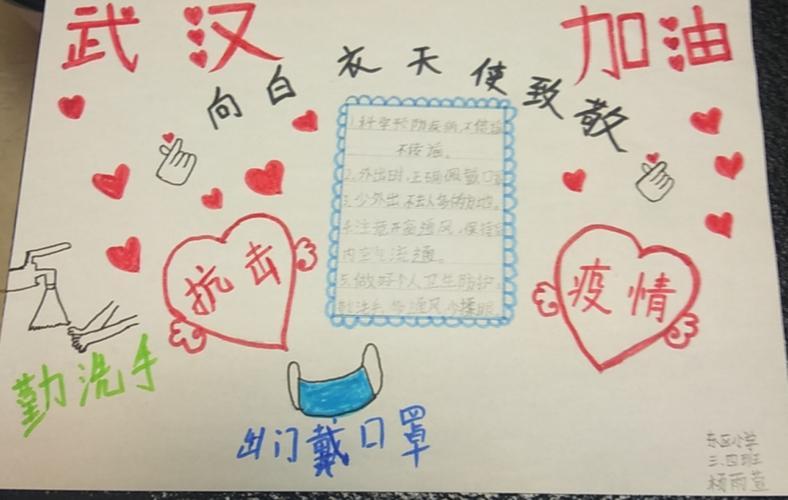 武汉 加油
向白衣天使致敬
1.科学预防疾病,不信谣
不传谣。
2.外出时,正确佩戴口罩
3.少外出,不去人多的地方。
4.注意开窗通风,保持室
内空气流通。
5.做好个人卫生防护。
勤洗手,多通风,少揉眼
抗击
疫情
勤洗手
出门戴口罩
东区小学
三.四班
杨雨萱